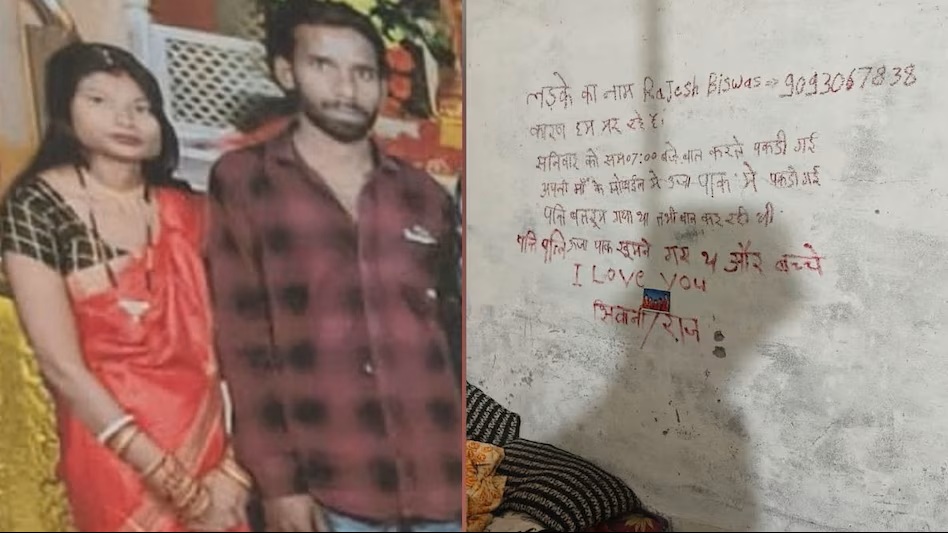 लड़के का नाम Rajesh Biswas => 9093067838
कारण हम मर रहे है।
सनिवार को सम 07:00 बजे बात करते पकडी गई
अपनी माँ के मोबाईल मे उजा पाक मे पकडी गई
पति बातरूम गया था तभी बात कर रही थी
पति पत्नि उजा पाक घुमने गए थे और बच्चे
I Love You
शिवानी/राज